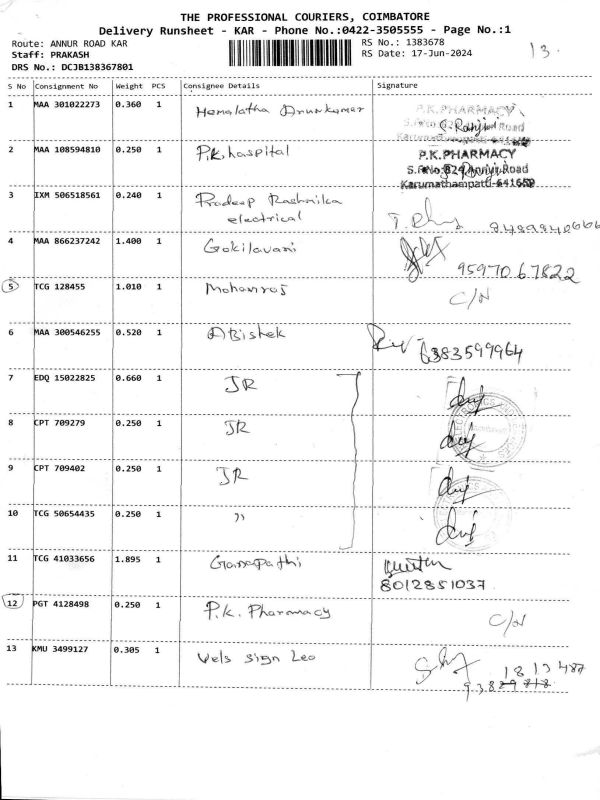 THE PROFESSIONAL COURIERS, COIMBATORE
Delivery Runsheet - KAR - Phone No.:0422-3505555 - Page No.:1
Route: ANNUR ROAD KAR
RS No.: 1383678
Staff: PRAKASH
RS Date: 17-Jun-2024
13.
DRS No.: DCJB138367801
S No Consignment No Weight PCS Consignee Details Signature
1 MAA 301022273 0.360 1 Hemalatha Arunkumar
P.K.PHARMACY
2 MAA 108594810 0.250 1 P.k.hospital
P.K.PHARMACY
S.F.No:824 Annur Road
Karumathampatti-641659
3 IXM 506518561 0.240 1 Pradeep Rashmika
electrical
4 MAA 866237242 1.400 1 Gokilavani
9597067822
5 TCG 128455 1.010 1 Mohanraj C/N
6 MAA 300546255 0.520 1 Abishek
6383599964
7 EDQ 15022825 0.660 1 JR
8 CPT 709279 0.250 1 JR
9 CPT 709402 0.250 1 JR
10 TCG 50654435 0.250 1 "
11 TCG 41033656 1.895 1 Ganapathi
8012851037
12 PGT 4128498 0.250 1 P.k. Pharmacy C/N
13 KMU 3499127 0.305 1 Vels sign Leo